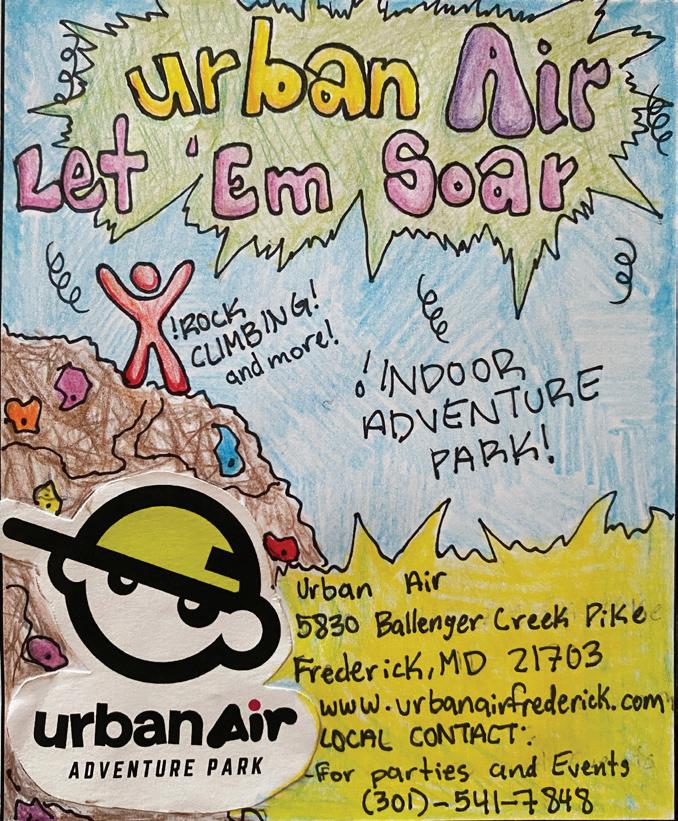 urban Air
Let 'Em Soar
!ROCK
CLIMBING!
and more!
¡INDOOR
ADVENTURE
PARK!
Urban Air
5830 Ballenger Creek Pike
Frederick, MD 21703
www.urbanairfrederick.com
LOCAL CONTACT:
-For parties and Events
(301)-541-7848
urbanAir
ADVENTURE PARK